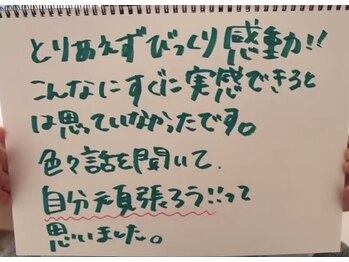 とりあえずびっくり感動!!
こんなにすぐに実感できると
は思っていなかったです。
色々話を聞いて、
自分頑張ろう!!って
思いました。